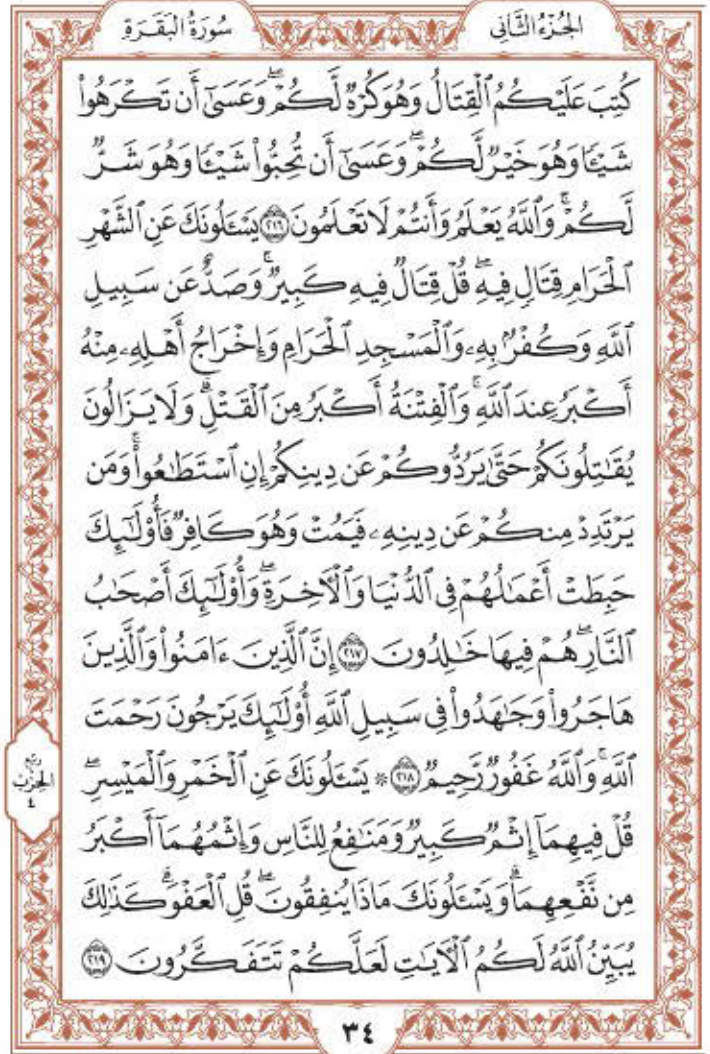 سُورَةُ الْبَقَرَةِ
الجُزْءُ الثَّانِي
كُتِبَ عَلَيْكُمُ ٱلْقِتَالُ وَهُوَ كُرْهٌ لَّكُمْۖ وَعَسَىٰٓ أَن تَكْرَهُواْ
شَيْـًٔا وَهُوَ خَيْرٌ لَّكُمْۖ وَعَسَىٰٓ أَن تُحِبُّواْ شَيْـًٔا وَهُوَ شَرٌّ
لَّكُمْۚ وَٱللَّهُ يَعْلَمُ وَأَنتُمْ لَا تَعْلَمُونَ ۝٢١٦ يَسْـَٔلُونَكَ عَنِ ٱلشَّهْرِ
ٱلْحَرَامِ قِتَالٍ فِيهِۖ قُلْ قِتَالٌ فِيهِ كَبِيرٌۚ وَصَدٌّ عَن سَبِيلِ
ٱللَّهِ وَكُفْرُۢ بِهِۦ وَٱلْمَسْجِدِ ٱلْحَرَامِ وَإِخْرَاجُ أَهْلِهِۦ مِنْهُ
أَكْبَرُ عِندَ ٱللَّهِۚ وَٱلْفِتْنَةُ أَكْبَرُ مِنَ ٱلْقَتْلِۗ وَلَا يَزَالُونَ
يُقَـٰتِلُونَكُمْ حَتَّىٰ يَرُدُّوكُمْ عَن دِينِكُمْ إِنِ ٱسْتَطَـٰعُواْۚ وَمَن
يَرْتَدِدْ مِنكُمْ عَن دِينِهِۦ فَيَمُتْ وَهُوَ كَافِرٌ فَأُوْلَـٰٓئِكَ
حَبِطَتْ أَعْمَـٰلُهُمْ فِى ٱلدُّنْيَا وَٱلْـَٔاخِرَةِۖ وَأُوْلَـٰٓئِكَ أَصْحَـٰبُ
ٱلنَّارِۖ هُمْ فِيهَا خَـٰلِدُونَ ۝٢١٧ إِنَّ ٱلَّذِينَ ءَامَنُواْ وَٱلَّذِينَ
هَاجَرُواْ وَجَـٰهَدُواْ فِى سَبِيلِ ٱللَّهِ أُوْلَـٰٓئِكَ يَرْجُونَ رَحْمَتَ
ٱللَّهِۚ وَٱللَّهُ غَفُورٌ رَّحِيمٌ ۝٢١٨ ۞ يَسْـَٔلُونَكَ عَنِ ٱلْخَمْرِ وَٱلْمَيْسِرِۖ
قُلْ فِيهِمَآ إِثْمٌ كَبِيرٌ وَمَنَـٰفِعُ لِلنَّاسِ وَإِثْمُهُمَآ أَكْبَرُ
مِن نَّفْعِهِمَاۗ وَيَسْـَٔلُونَكَ مَاذَا يُنفِقُونَۖ قُلِ ٱلْعَفْوَۗ كَذَٰلِكَ
يُبَيِّنُ ٱللَّهُ لَكُمُ ٱلْـَٔايَـٰتِ لَعَلَّكُمْ تَتَفَكَّرُونَ ۝٢١٩
رُبع
الحِزْب
٤
٣٤